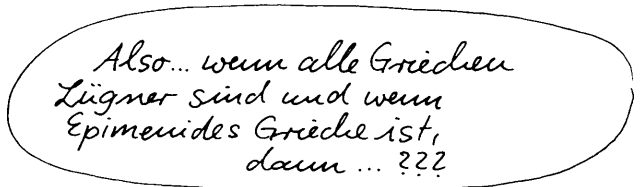 Also... wenn alle Griechen
Lügner sind und wenn
Epimenides Grieche ist,
dann ... ???